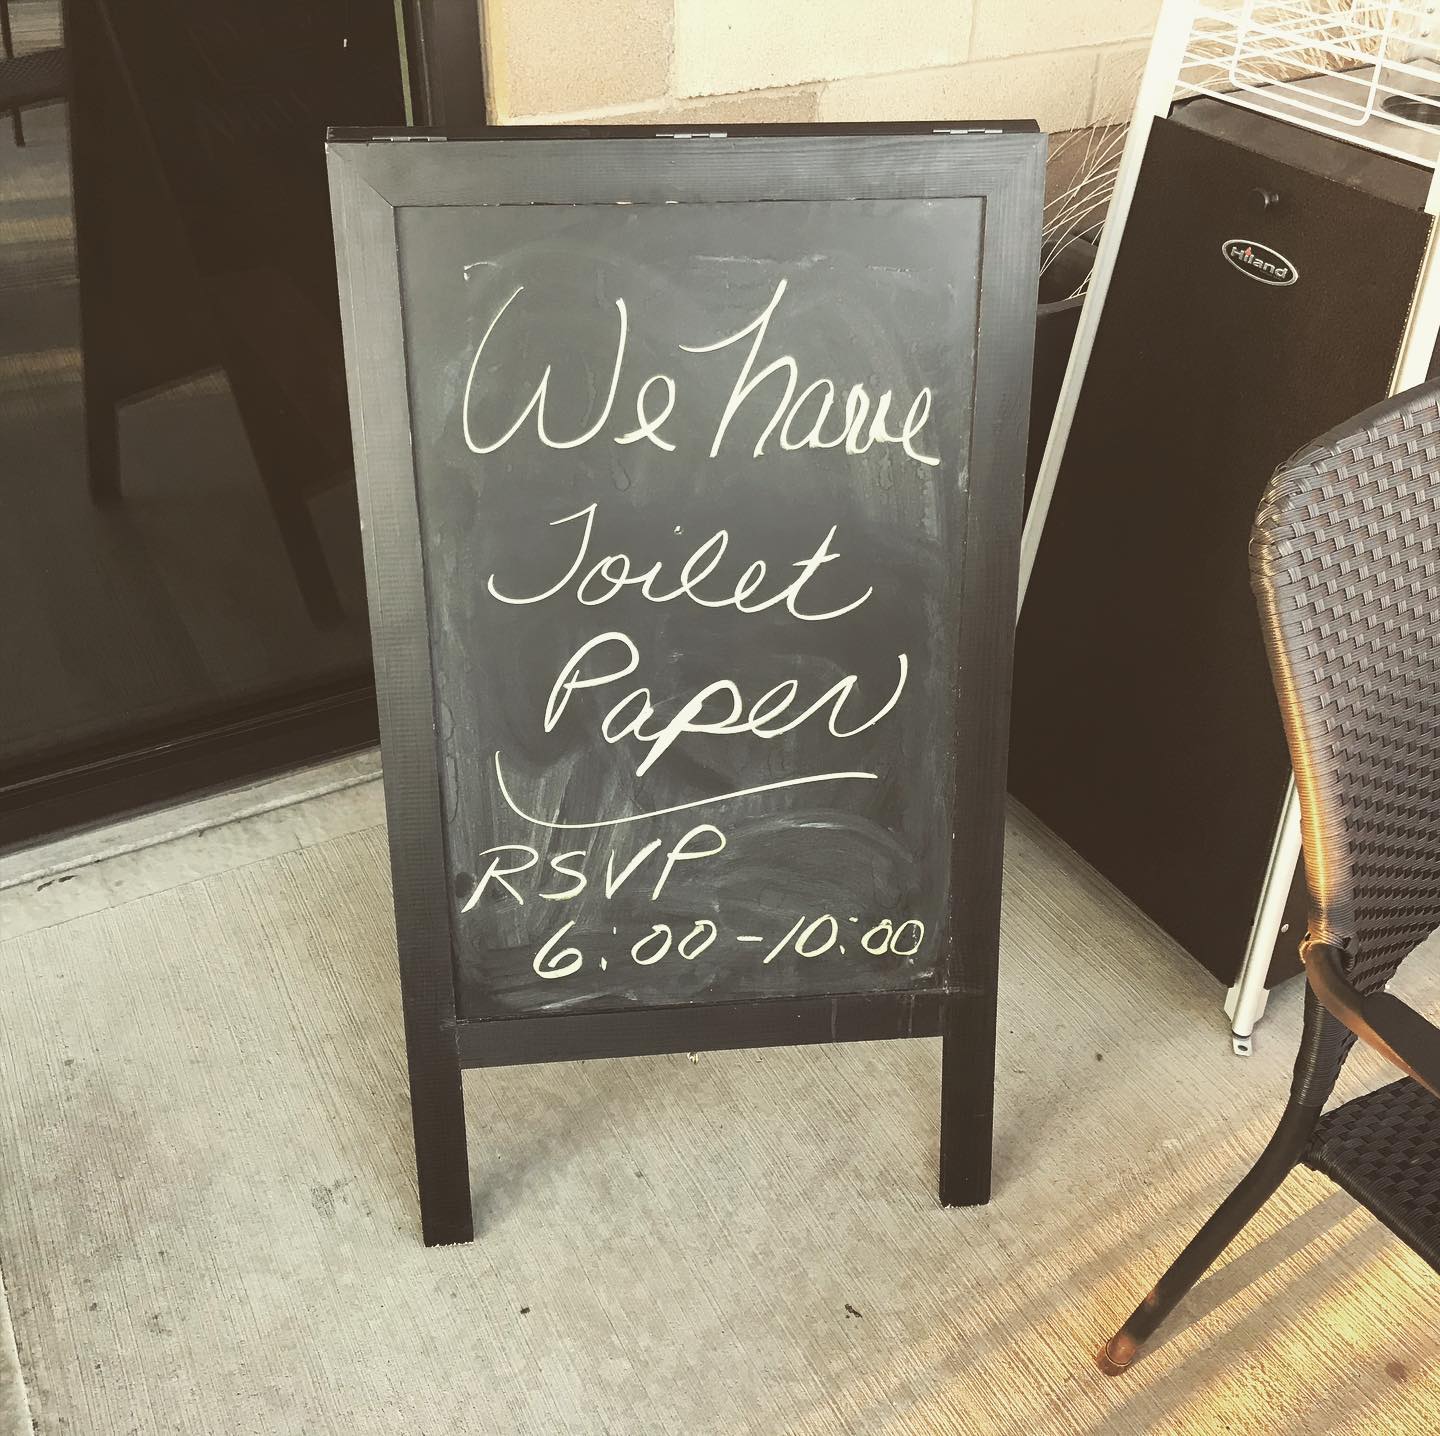 We have
Toilet
Paper
RSVP
6:00-10:00
Hiland